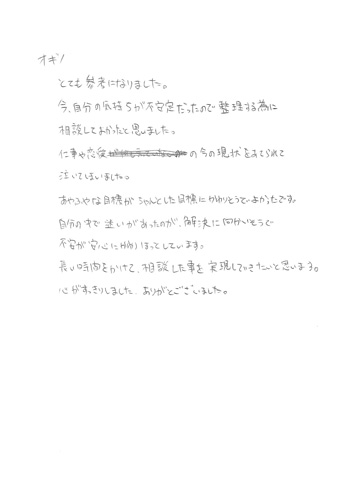 オギノ
とても参考になりました。
今、自分の気持ちが不安定だったので整理する為に
相談してよかったと思いました。
仕事や恋愛の今の現状をあてられて
泣いてしまいました。
あやふやな目標がちゃんとした目標にかわりそうでよかったです。
自分の中で迷いがあったのが、解決に向かいそうで
不安が安心にかわりほっとしています。
長い時間をかけて、相談した事を実現していきたいと思います。
心がすっきりしました。ありがとうございました。